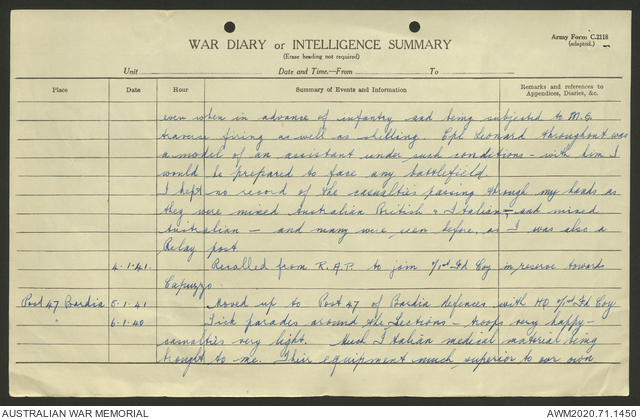 Army Form C.2118
(adapted.)
WAR DIARY or INTELLIGENCE SUMMARY
(Erase heading not required)
Unit Date and Time.—From To
Place Date Hour Summary of Events and Information Remarks and references to Appendices, Diaries, &c.
even when in advance of infantry and being subjected to M.G.
traverse firing as well as shelling. Cpl Leonard throughout was
a model of an assistant under such conditions - with him I
would be prepared to face any battlefield.
I kept no record of the casualties passing through my hands as
they were mixed Australian British & Italian - and mixed
Australian - and many were seen before, as I was also a
Relay post
4.1.41. Recalled from R.A.P. to join 2/1st Fd Coy in reserve towards
Capuzzo
Post 47 Bardia 5.1.41 Moved up to Post 47 of Bardia defences with HQ 2/1st Fd Coy
" 6.1.40 Sick parades around the Sections - troops very happy -
casualties very light. Much Italian medical material being
brought to me. Their equipment much superior to our own
AUSTRALIAN WAR MEMORIAL AWM2020.71.1450